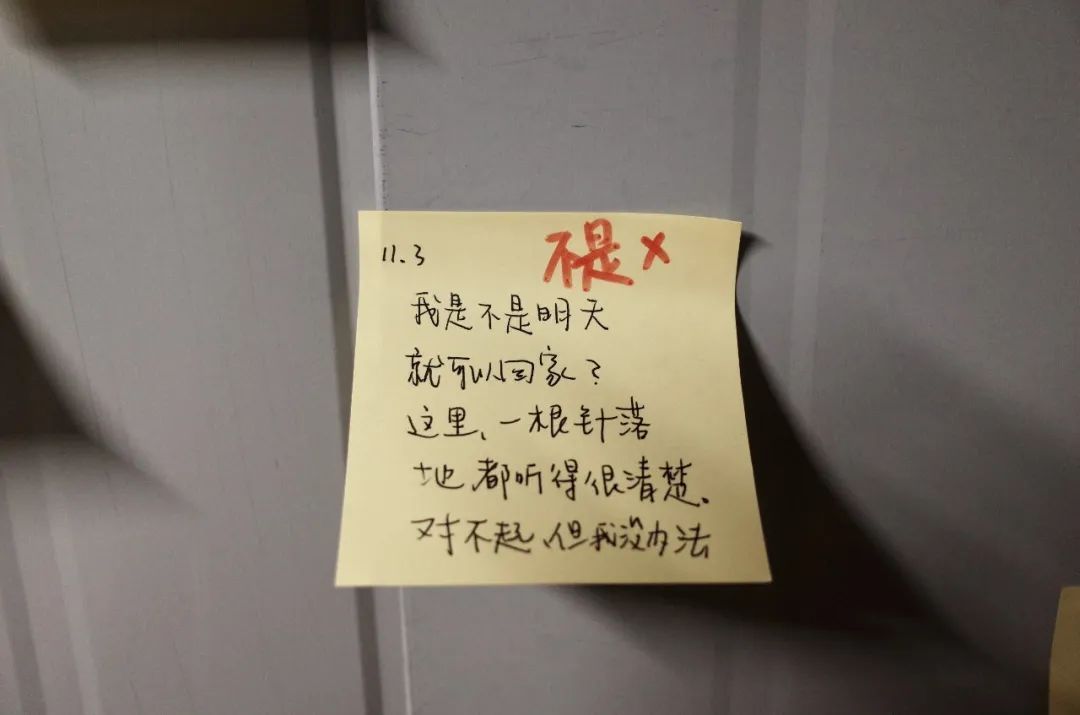 11.3
不是×
我是不是明天
就可以回家?
这里、一根针落
地都听得很清楚.
对不起、但我没办法